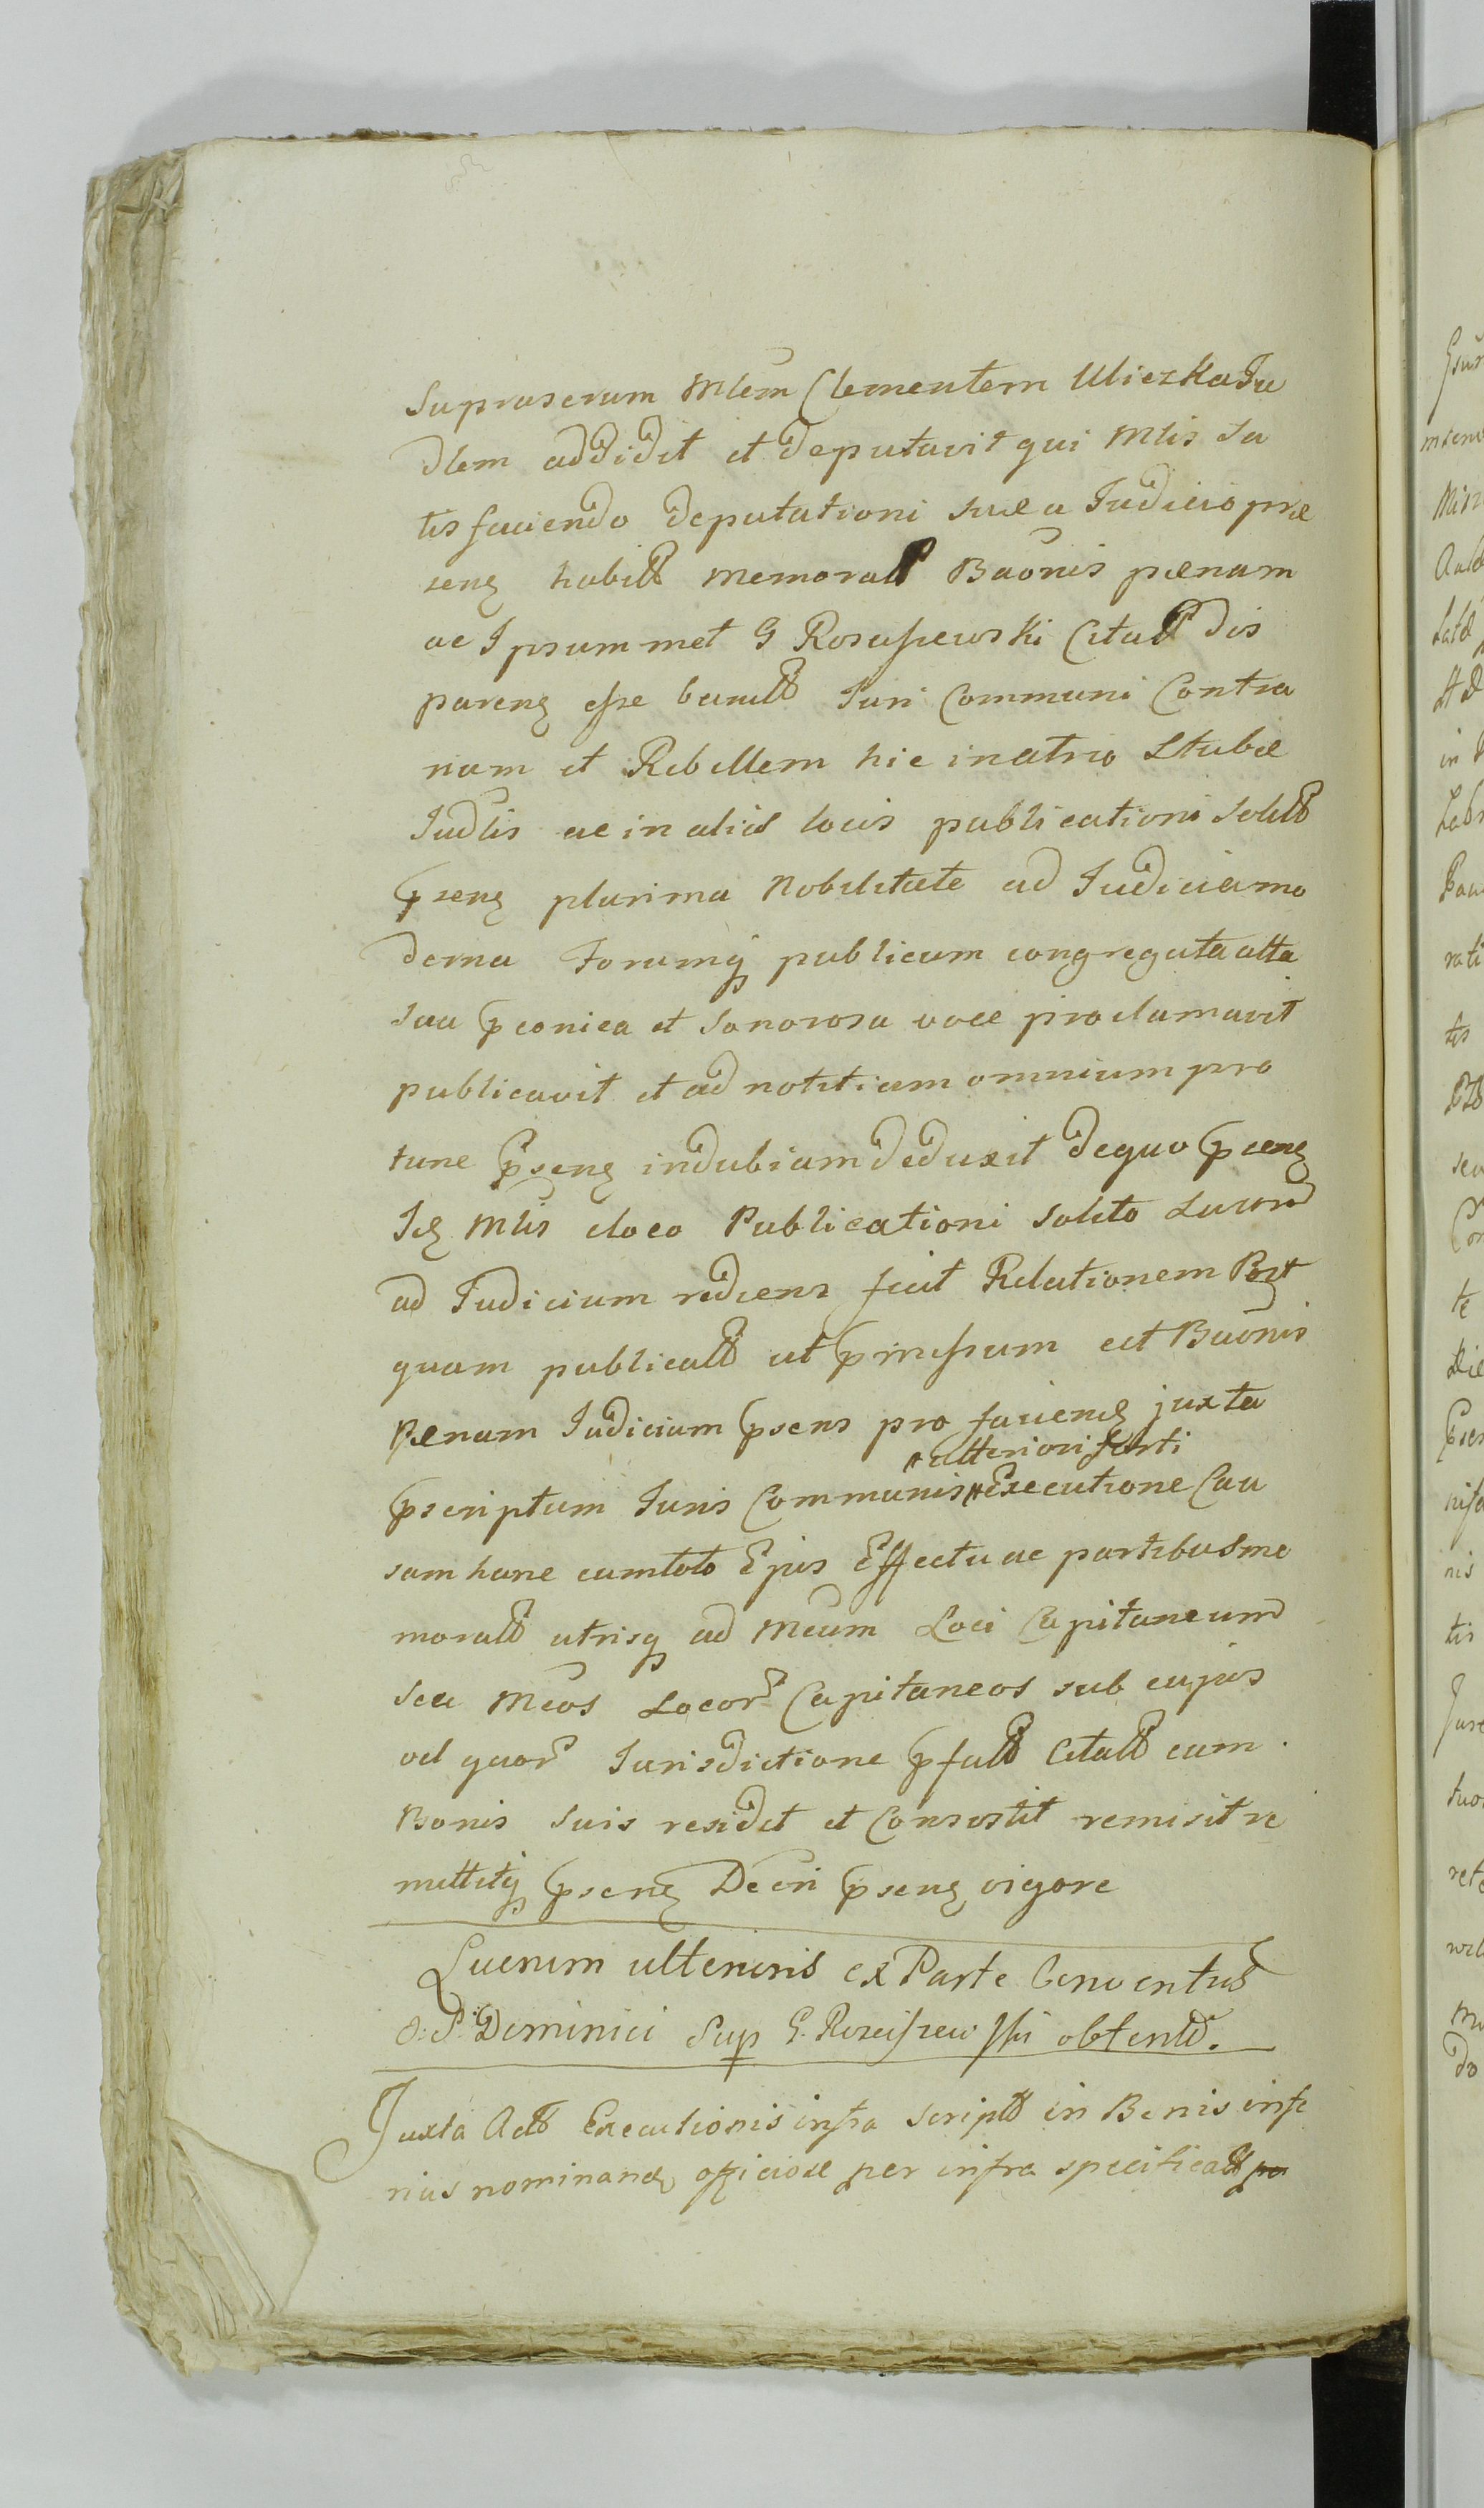 Supraserum Mlem Clementem Uliczka Ju
dlem addidit et deputavit qui Mlis Sa
tisfaciendo deputationi suæ a Judicio præ
senꝫ habitt memoratt Baonis pænam
ac Ipsummet G Rosaszewski Citatt dis
parenꝫ esse banitt Juri Communi Contra
rium et Rebellem hic in atrio Stubæ
Judlis ac in aliis locis publicationi Solitt
psenꝫ plurima Nobilitate ad Judicia mo
derna Forumqꝫ publicum congregata alta
sua pconica et Sonorosa voce proclamavit
publicavit et ad notitiam omnium pro
tunc psenꝫ indubiam deduxit de quo psenꝫ
Idꝫ Mlis e loco Publicationi Solito
ad Judicium rediens fecit Relationem Post
quam publicatt ut pmissum est Baonis
Pænam Judicium psens pro faciendꝫ juxta
ulteriori forti
pscriptum Juris Communis Executione Cau
sam hanc cum toto Ejus Effectu ac partibus me
moratt utrisqꝫ ad Mcum Loci Capitaneum
seu Mcos Locor Capitaneos sub cujus
vel quor Jurisdictione pfatt Citatt cum
Bonis Suis residet et Consistit remisit re
mittitqꝫ psenꝫ Decri psenꝫ vigore
Lucrum ulterioris ex Parte Conventus
O: S: Dominici Sup G. Rosciszewski obtentt.
Juxta Actt Executionis infra Scriptt in Bonis infe
rius nominandꝫ officiose per infra specificatt